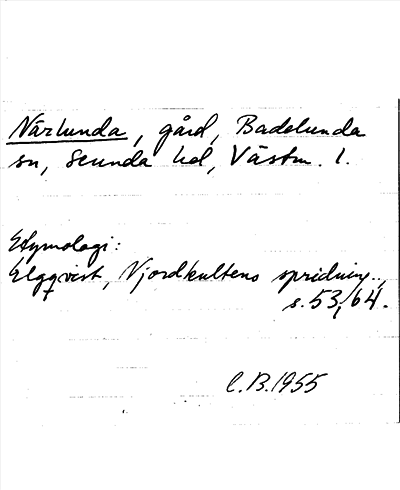 Närlunda, gård, Badelunda
sn, Siende hd, Västm. l.
Etymologi:
Elgqvist, Njordkultens spridning..,
s. 53, 64.
C.B. 1955